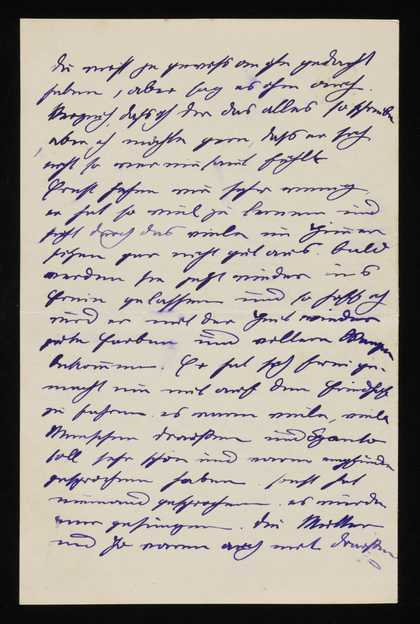 Du wirst ja gewiss an ihn gedacht
haben, aber sag es ihm auch.
Verzeih, dass ich dir das alles so schreibe
aber ich möchte gern, dass er sich
nicht so vereinsamt fühlt
Ernst sehen wir sehr wenig
er hat so viel zu lernen und
sieht durch das viele im Zimmer
sitzen gar nicht gut aus. bald
werden sie jetzt wieder ins
Freie gelassen und so hoffe ich
wird er mit der Zeit wieder
gute Farben und vollere Wangen
bekommen Er hat sich frei ge-
macht um mit auf den Friedhof
zu fahren. es waren viele, viele
Menschen draußen und
soll sehr schön und warm empfunden
gesprochen haben. sonst hat
niemand gesprochen. es wurde
nur gesungen. Die Mutter
und ich waren auch mit draußen